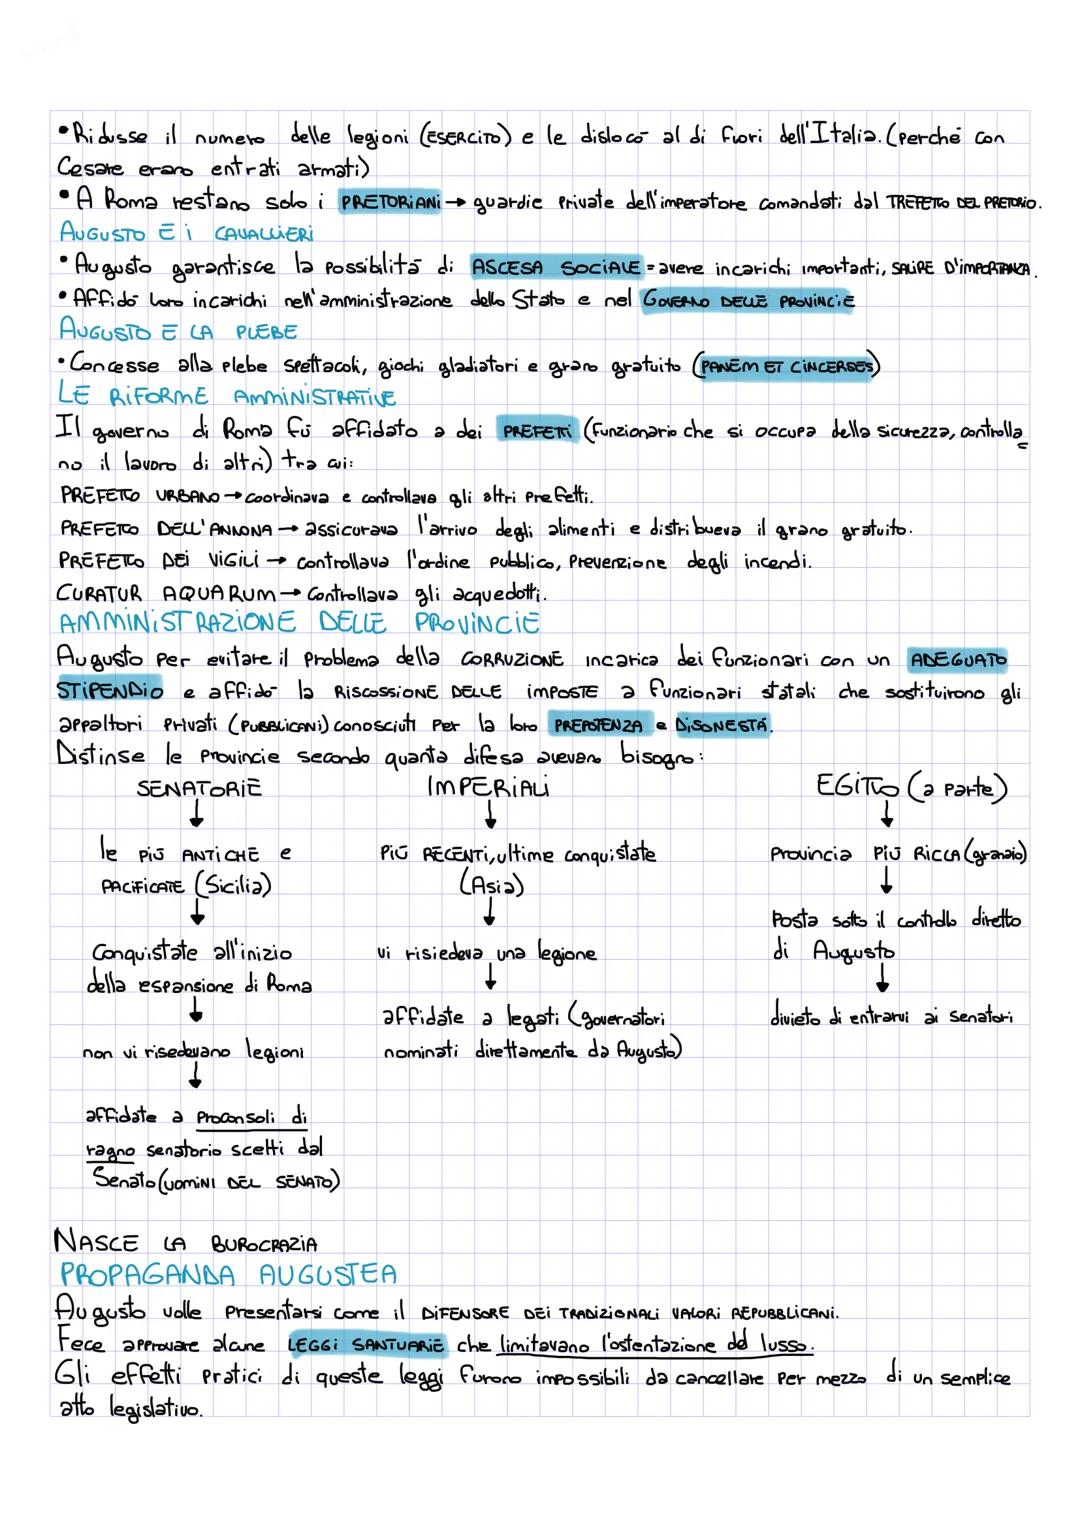 •Ridusse il numero delle legioni (ESERCITO) e le dislocò al di fuori dell'Italia. (perché con
Cesare erano entrati armati)
•A Roma restano solo i PRETORIANI → guardie private dell'imperatore comandati dal TREFETTO DEL PRETORIO.
AUGUSTO E i CAVALLIERI
•Augusto garantisce la possibilità di ASCESA SOCIALE = avere incarichi importanti, SALIRE D'IMPORTANZA.
•Affidò loro incarichi nell'amministrazione dello Stato e nel GOVERNO DELLE PROVINCIE
AUGUSTO E LA PLEBE
•Concesse alla plebe spettacoli, giochi gladiatori e grano gratuito (PANEM ET CINCERSES)
LE RIFORME AMMINISTRATIVE
Il governo di Roma fù affidato a dei PREFETTI (Funzionario che si occupa della sicurezza, controlla
no il lavoro di altri) tra cui:
PREFETTO URBANO → coordinava e controllava gli altri Prefetti.
PREFETTO DELL'ANNONA → assicurava l'arrivo degli alimenti e distribueva il grano gratuito.
PREFETTO DEI VIGILI → controllava l'ordine pubblico, Prevenzione degli incendi.
CURATUR AQUARUM → Controllava gli acquedotti.
AMMINISTRAZIONE DELLE PROVINCIE
Augusto per evitare il problema della CORRUZIONE incarica dei funzionari con un ADEGUATO
STIPENDIO e affidò la RISCOSSIONE DELLE IMPOSTE a funzionari statali che sostituirono gli
appaltori privati (PUBBLICANI) conosciuti per la loro PREPOTENZA e DISONESTÁ.
Distinse le Provincie secondo quanta difesa avevano bisogno:
SENATORIE IMPERIALI EGITTO (a parte)
↓ ↓ ↓
le PIÙ ANTICHE e PIÙ RECENTI, ultime conquistate Provincia PIÙ RICCA (granaio)
PACIFICATE (Sicilia) (Asia) ↓
↓ ↓ Posta sotto il controllo diretto
Conquistate all'inizio vi risiedeva una legione di Augusto
della espansione di Roma ↓ ↓
↓ affidate a legati (governatori divieto di entrarvi ai senatori
non vi risedevano legioni nominati direttamente da Augusto)
↓
affidate a Proconsoli di
ragno senatorio scelti dal
Senato (UOMINI DEL SENATO)
NASCE LA BUROCRAZIA
PROPAGANDA AUGUSTEA
Augusto volle Presentarsi come il DIFENSORE DEI TRADIZIONALI VALORI REPUBBLICANI.
Fece approvare alcune LEGGI SANTUARIE che limitavano l'ostentazione del lusso.
Gli effetti Pratici di queste leggi furono impossibili da cancellare Per mezzo di un semplice
atto legislativo.